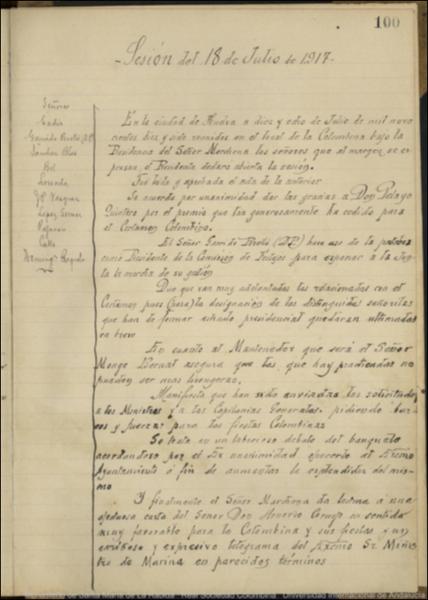 100
Sesión del 18 de Julio de 1917.
Señores
Cádiz
Garrido Perelló J.P.
Sánchez
Bel
Terrades
J.P. Vázquez
López Gómez
Calle
Domínguez
En la ciudad de Huelva a diez y ocho de Julio de mil nove
cientos diez y siete reunidos en el local de la Colombina bajo la
Presidencia del Señor Marchena los señores que al margen se ex
presan, el Presidente declaró abierta la sesión.
Fué leida y aprobada el acta de la anterior.
Se acuerda por unanimidad dar las gracias a Don Pelayo
Quintero por el premio que tan generosamente ha cedido para
el Certamen Colombino.
El Señor Garrido Perelló (J.P.) hace uso de la palabra
como Presidente de la Comisión de Festejos para exponer a la Jun
ta la marcha de su gestión
Dice que van muy adelantados los relacionados con el
Certamen pues (para) la designación de las distinguidas señoritas
que han de formar estrado presidencial quedarán ultimadas
en breve
En cuanto al Mantenedor que será el Señor
Monge Bernal asegura que las que hay practicadas no
pueden ser mas lisongeras.
Manifiesta que han sido enviadas las solicitudes
a los Ministros y a las Capitanias Generales pidiendo bar
cos y fuerzas para las fiestas Colombinas
Se trata en un laborioso debate del banquete
acordandose por unanimidad ofrecerlo al Excmo
Ayuntamiento a fin de aumentar la explendidez del mis
mo
Y finalmente el Señor Marchena da lectura a una
afectuosa carta del Señor Don Honorio Cornejo en sentido
muy favorable para la Colombina y sus fiestas y un
cariñoso y expresivo telegrama del Excmo Sr. Minis
tro de Marina en parecidos términos